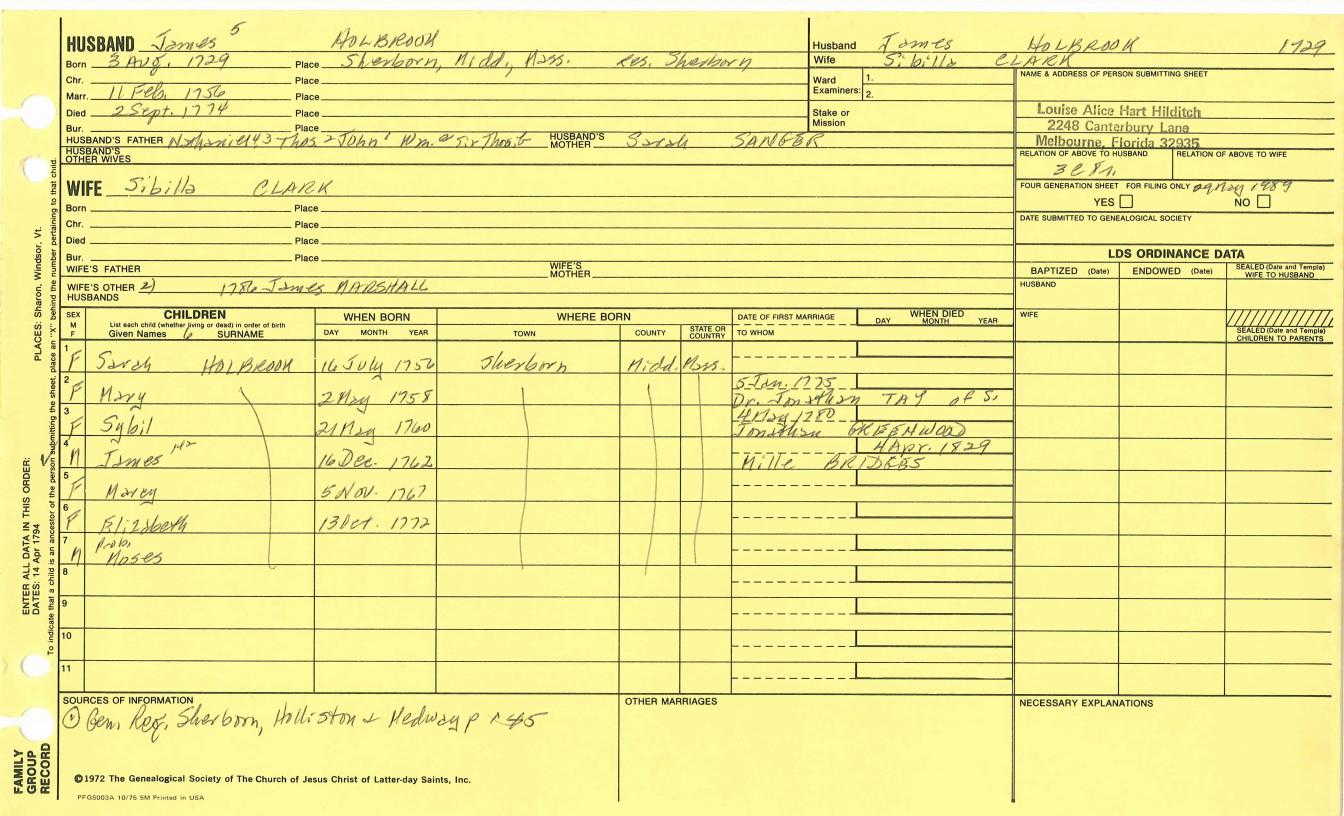 HUSBAND James 5 HOLBROOK
Born 3 Aug. 1729 Place Sherborn, Midd., Mass. res. Sherborn
Chr. Place
Marr. 11 Feb. 1756 Place
Died 2 Sept. 1774 Place
Bur. Place
HUSBAND'S FATHER Nathaniel 4 3 Thos 2 John 1 Wm. HUSBAND'S MOTHER Sarah SANGER
HUSBAND'S OTHER WIVES
Husband James HOLBROOK 1729
Wife Sibilla CLARK
Ward Examiners: 1.
2.
Stake or Mission
NAME & ADDRESS OF PERSON SUBMITTING SHEET
Louise Alice Hart Hilditch
2248 Canterbury Lane
Melbourne, Florida 32935
RELATION OF ABOVE TO HUSBAND RELATION OF ABOVE TO WIFE
FOUR GENERATION SHEET FOR FILING ONLY 09 May 1989
YES NO
DATE SUBMITTED TO GENEALOGICAL SOCIETY
WIFE Sibilla CLARK
Born Place
Chr. Place
Died Place
Bur. Place
WIFE'S FATHER WIFE'S MOTHER
WIFE'S OTHER HUSBANDS 2) 1786 James MARSHALL
LDS ORDINANCE DATA
BAPTIZED (Date) ENDOWED (Date) SEALED (Date and Temple) WIFE TO HUSBAND
HUSBAND
WIFE
SEALED (Date and Temple) CHILDREN TO PARENTS
SEX M F
CHILDREN
List each child (whether living or dead) in order of birth
Given Names 6 SURNAME
WHEN BORN
DAY MONTH YEAR
WHERE BORN
TOWN COUNTY STATE OR COUNTRY
DATE OF FIRST MARRIAGE
TO WHOM
WHEN DIED
DAY MONTH YEAR
1 F Sarah HOLBROOK 16 July 1756 Sherborn Midd. Mass.
2 F Mary 2 May 1758 5 Jan. 1775
Dr. Jonathan TAY of S.
3 F Sybil 21 May 1760 4 May 1780
Jonathan GREENWOOD
4 M James 16 Dec. 1762 4 Apr. 1829
Mille
5 F Marcy 5 Nov. 1767
6 F Elizabeth 13 Oct. 1772
7 M Prob. Moses
8
9
10
11
SOURCES OF INFORMATION
1 Gen. Reg. Sherborn, Holliston & Medway p
OTHER MARRIAGES
NECESSARY EXPLANATIONS
©1972 The Genealogical Society of The Church of Jesus Christ of Latter-day Saints, Inc.
PFGS003A 10/76 5M Printed in USA
FAMILY GROUP RECORD
ENTER ALL DATA IN THIS ORDER:
DATES: 14 Apr 1794
PLACES: Sharon, Windsor, Vt.
To indicate that a child is an ancestor of the person submitting the sheet, place an "X" behind the number pertaining to that child.